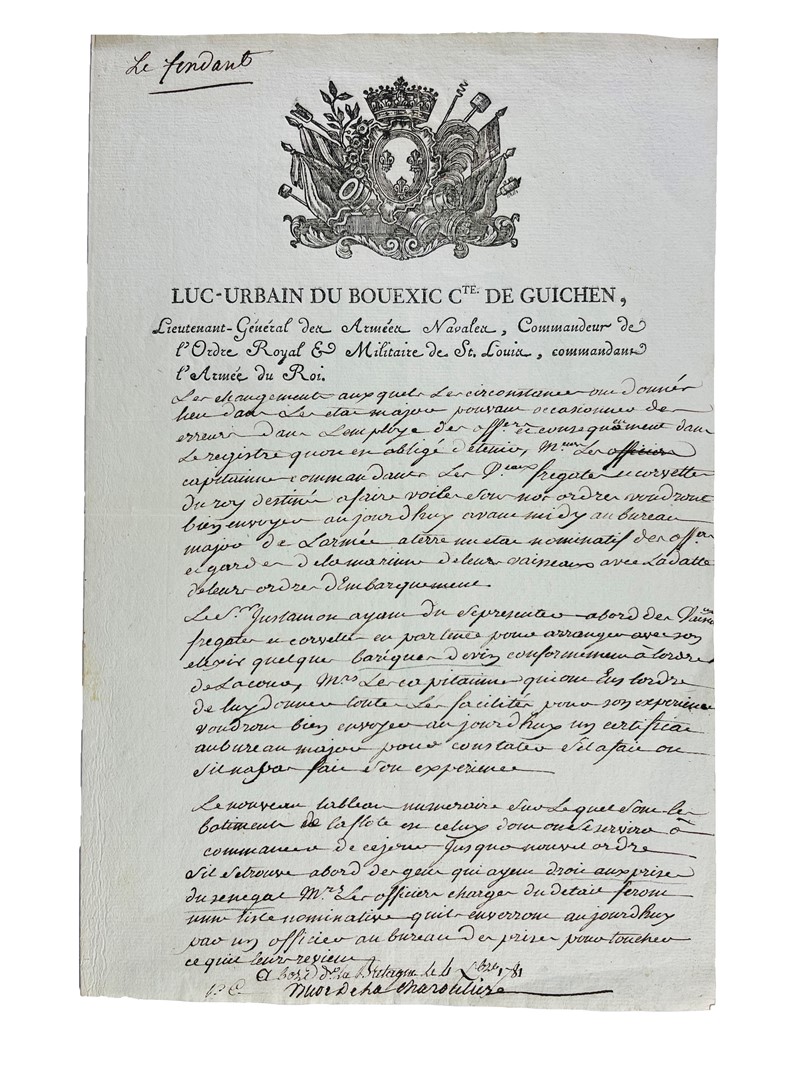 Le fendant
LUC-URBAIN DU BOUEXIC CTE. DE GUICHEN,
Lieutenant-Général des Armées Navales, Commandeur de
l'Ordre Royal & Militaire de St. Louis, commandant
l'Armée du Roi.
Les changements auxquels Les circonstances ont donnés
lieu dans Les etat major pouvant occasionner des
erreurs dans L'employe des offers et consequament dans
Le registre quon en obligé de tenir, Mrs Les officiers
capitainne commandants Les Veaux fregate et corvette
du roy destiné a faire voile sous nos ordres voudront
bien envoyer aujourdhuy avant midy au bureau
major de Larmée a terre un etat nominatif des offers
et gardes de la marine de leur vaisseaux avec La datte
de leurs ordre d'Embarquement
Le Sr. Justamon ayant du se presenter abord des Vaisaux
fregate et corvette en partence pour arranger avec son
elixir quelques barique de vin conformément à lordre
de La cour, Mrs Les capitainne qui ont Eus lordre
de luy donner toutes Les facilités pour son experience
voudront bien envoyer aujourdhuy un certificat
au bureau major pour constater s'il a fait ou
s'il n'a pas fait son experience
Le nouveau tableau numeraire sur Lequel sont les
batiments de la flote est celuy dont on se servira à
commancer de ce jour Jusqu'o nouvel ordre
s'il se trouve abord des gens qui ayent droit aux prises
du senegal Mrs Les officiers charger du detail feront
unne liste nominative quils enverront aujourdhuy
par un officier au bureau des prises pour toucher
ce qui leur revient
A bord de la Bretagne le 4 Xbre 1781